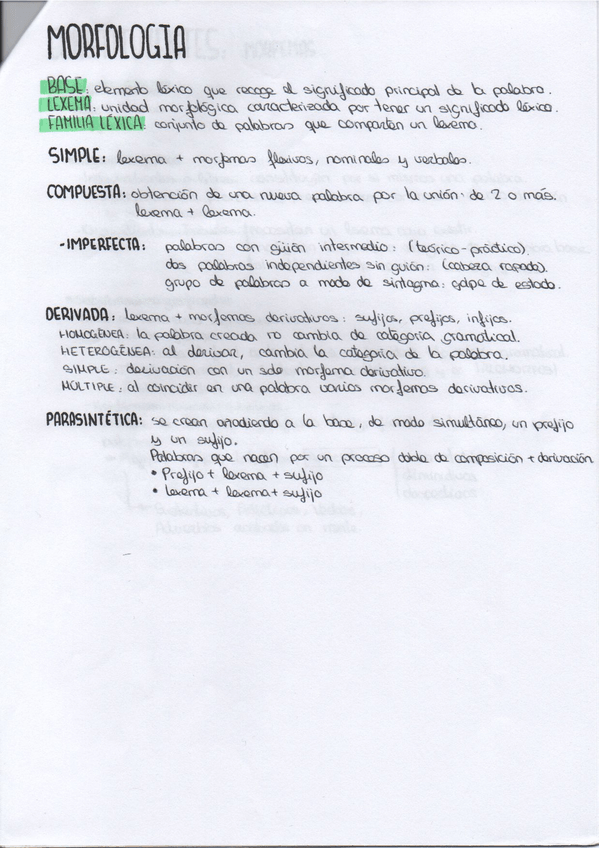 MORFOLOGIA
BASE: elemento léxico que recoge el significado principal de la palabra.
LEXEMA: unidad morfológica caracterizada por tener un significado léxico.
FAMILIA LÉXICA: conjunto de palabras que comparten un lexema.
SIMPLE: lexema + morfemas flexivos, nominales y verbales.
COMPUESTA: obtención de una nueva palabra por la unión de 2 o más.
lexema + lexema.
- IMPERFECTA: palabras con güión intermedio: (teórico-práctico).
dos palabras independientes sin guión: (cabeza rapada).
grupo de palabras a modo de sintagma: golpe de estado.
DERIVADA: lexema + morfemas derivativos: sufijos, prefijos, infijos.
HOMOGÉNEA: la palabra creada no cambia de categoría gramatical.
HETEROGÉNEA: al derivar, cambia la categoría de la palabra.
SIMPLE: derivación con un solo morfema derivativo.
MÚLTIPLE: al coincidir en una palabra varios morfemas derivativos.
PARASINTÉTICA: se crean añadiendo a la base, de modo simultáneo, un prefijo
y un sufijo.
Palabras que nacen por un proceso doble de composición + derivación
• Prefijo + lexema + sufijo
• Lexema + lexema + sufijo